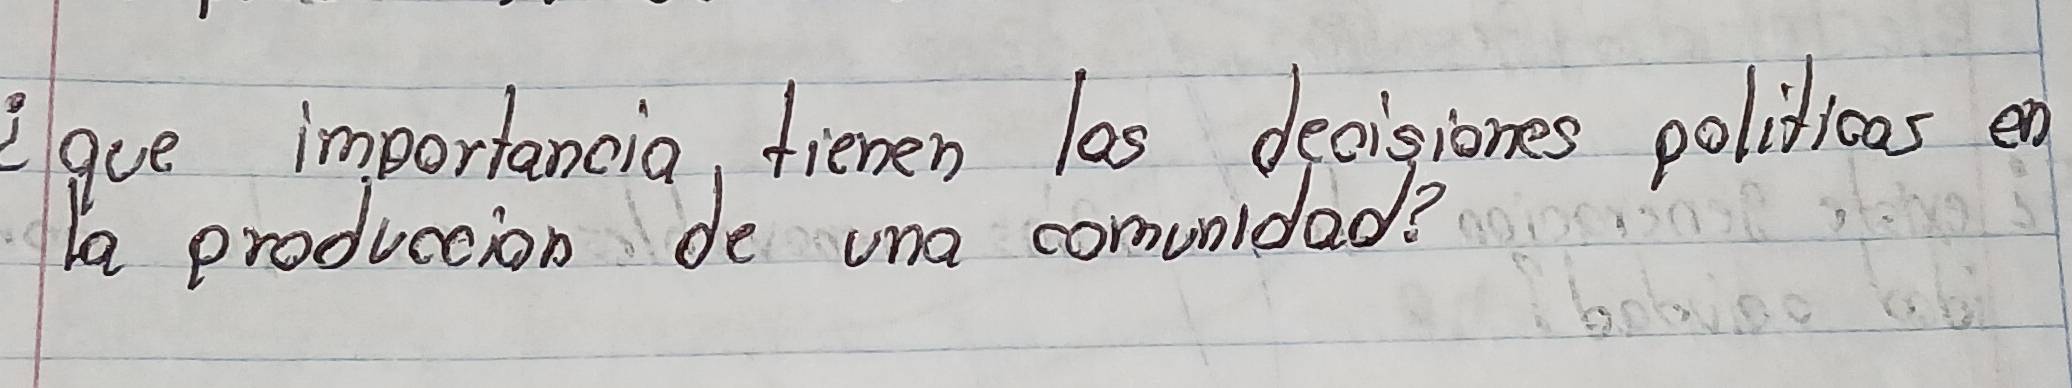 ¿que importancia, tienen las decisiones politicas en
la produccion de una comunidad?